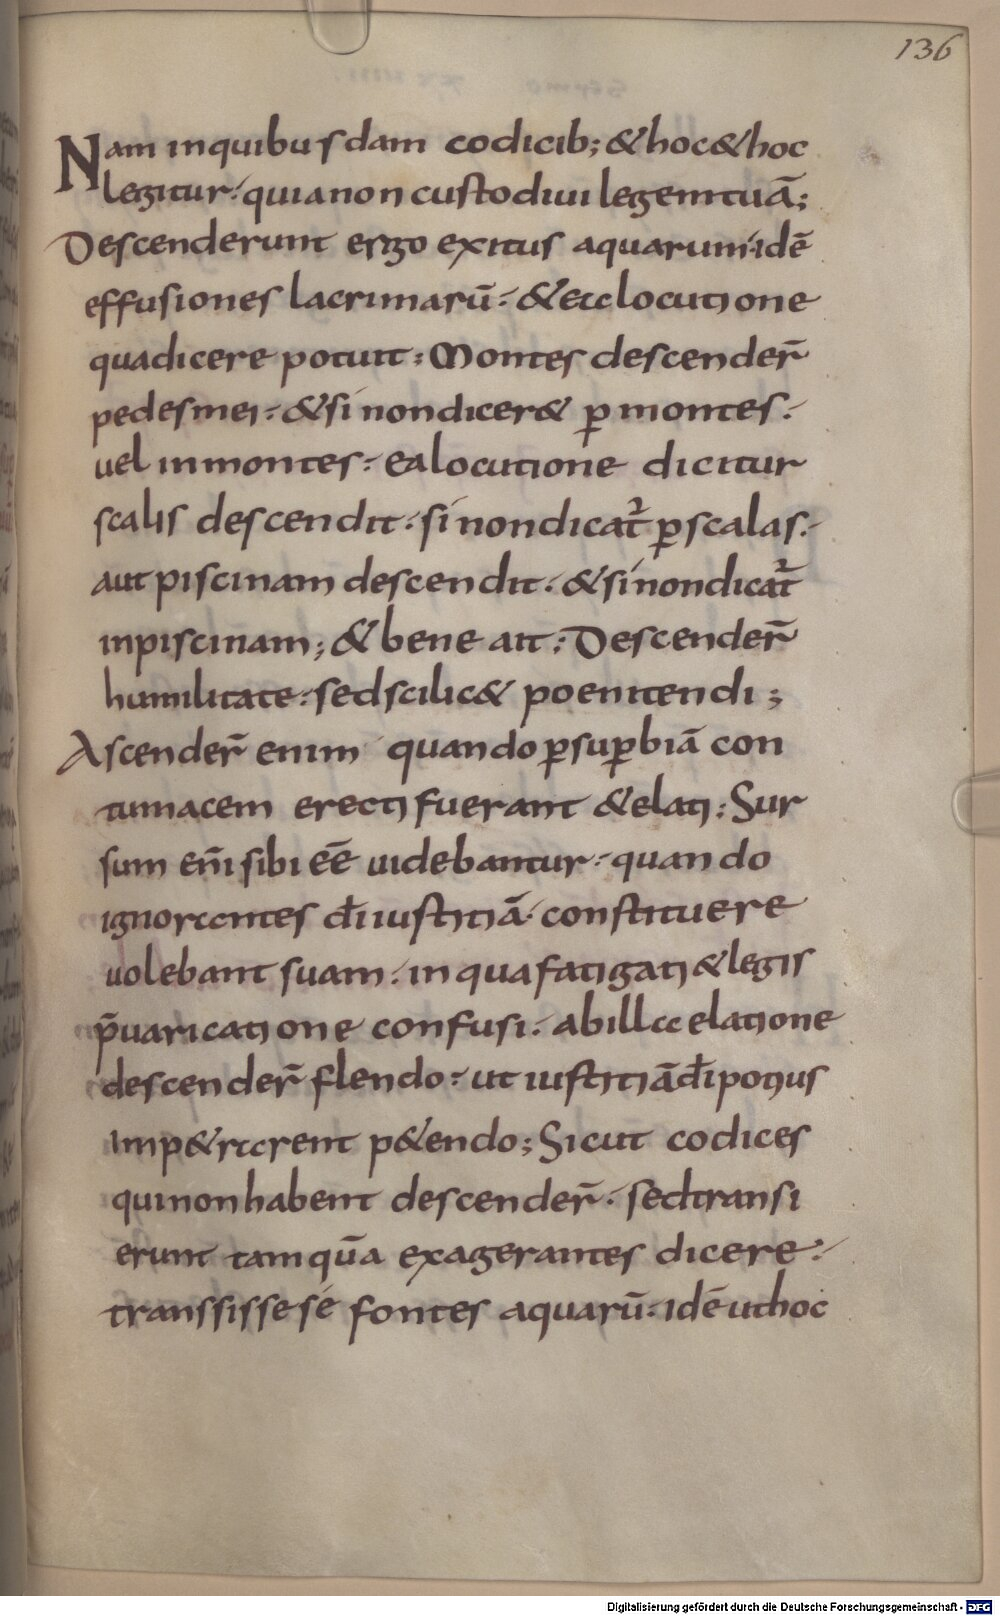 136
Nam in quibusdam codicib; & hoc & hoc
legitur. quia non custodiui legem tuā;
Descenderunt ergo exitus aquarum. idē
effusiones lacrimarū. & ea locutione
qua dicere potuit: Montes descender̄
pedes mei. & si non dicer& ꝑ montes.
uel in montes. ea locutione dicitur
scalis descendit. si non dicat᷑ ꝑ scalas.
aut piscinam descendit. & si non dicat᷑
in piscinam; & bene ait: Descender̄
humilitate. sed scilic& poenitendi;
Ascender̄ enim quando ꝑ suꝑbiā con
tumacem erecti fuerant & elati: Sur
sum em̄ sibi eē uidebantur. quando
ignorantes dī iustitiā. constituere
uolebant suam. in qua fatigati & legis
p̄uaricatione confusi. ab illa elatione
descender̄ flendo. ut iustitiā dī potius
imp&rarent p&endo; Sicut codices
qui non habent descender̄. sed transi
erunt tamquā exagerantes dicere.
transsisse se fontes aquarū. idē ut hoc
Digitalisierung gefördert durch die Deutsche Forschungsgemeinschaft - DFG